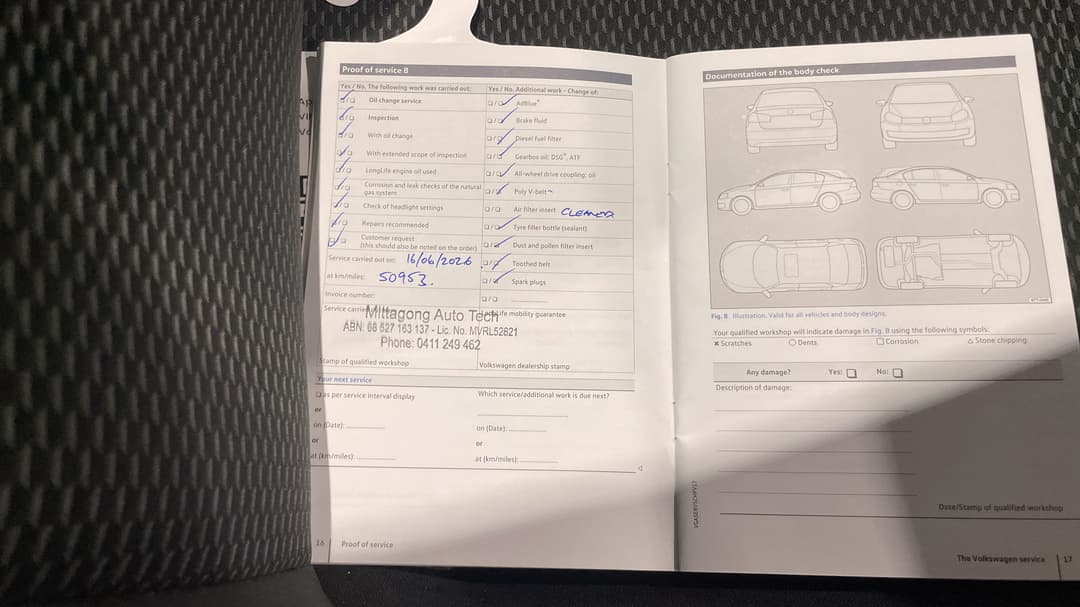 Proof of service B
Yes / No. The following work was carried out:
Oil change service
Inspection
With oil change
With extended scope of inspection
LongLife engine oil used
Corrosion and leak checks of the natural
gas system
Check of headlight settings
Repairs recommended
Customer request
(this should also be noted on the order)
Service carried out on: 16/06/2026
at km/miles: 50953.
Invoice number:
Service carried
Mittagong Auto Tech
ABN: 68 627 163 137 - Lic. No. MVRL52821
Phone: 0411 249 462
Stamp of qualified workshop
Yes / No. Additional work - Change of:
AdBlue®
Brake fluid
Diesel fuel filter
Gearbox oil: DSG®, ATF
All-wheel drive coupling: oil
Poly V-belt
Air filter insert CLEANED
Tyre filler bottle (sealant)
Dust and pollen filter insert
Toothed belt
Spark plugs
mobility guarantee
Volkswagen dealership stamp
Your next service
as per service interval display
or
on (Date):
or
at (km/miles):
Which service/additional work is due next?
on (Date):
or
at (km/miles):
16 Proof of service
Documentation of the body check
Fig. 8 Illustration. Valid for all vehicles and body designs.
Your qualified workshop will indicate damage in Fig. 8 using the following symbols:
× Scratches O Dents □ Corrosion △ Stone chipping
Any damage? Yes: □ No: □
Description of damage:
Date/Stamp of qualified workshop
The Volkswagen service 17